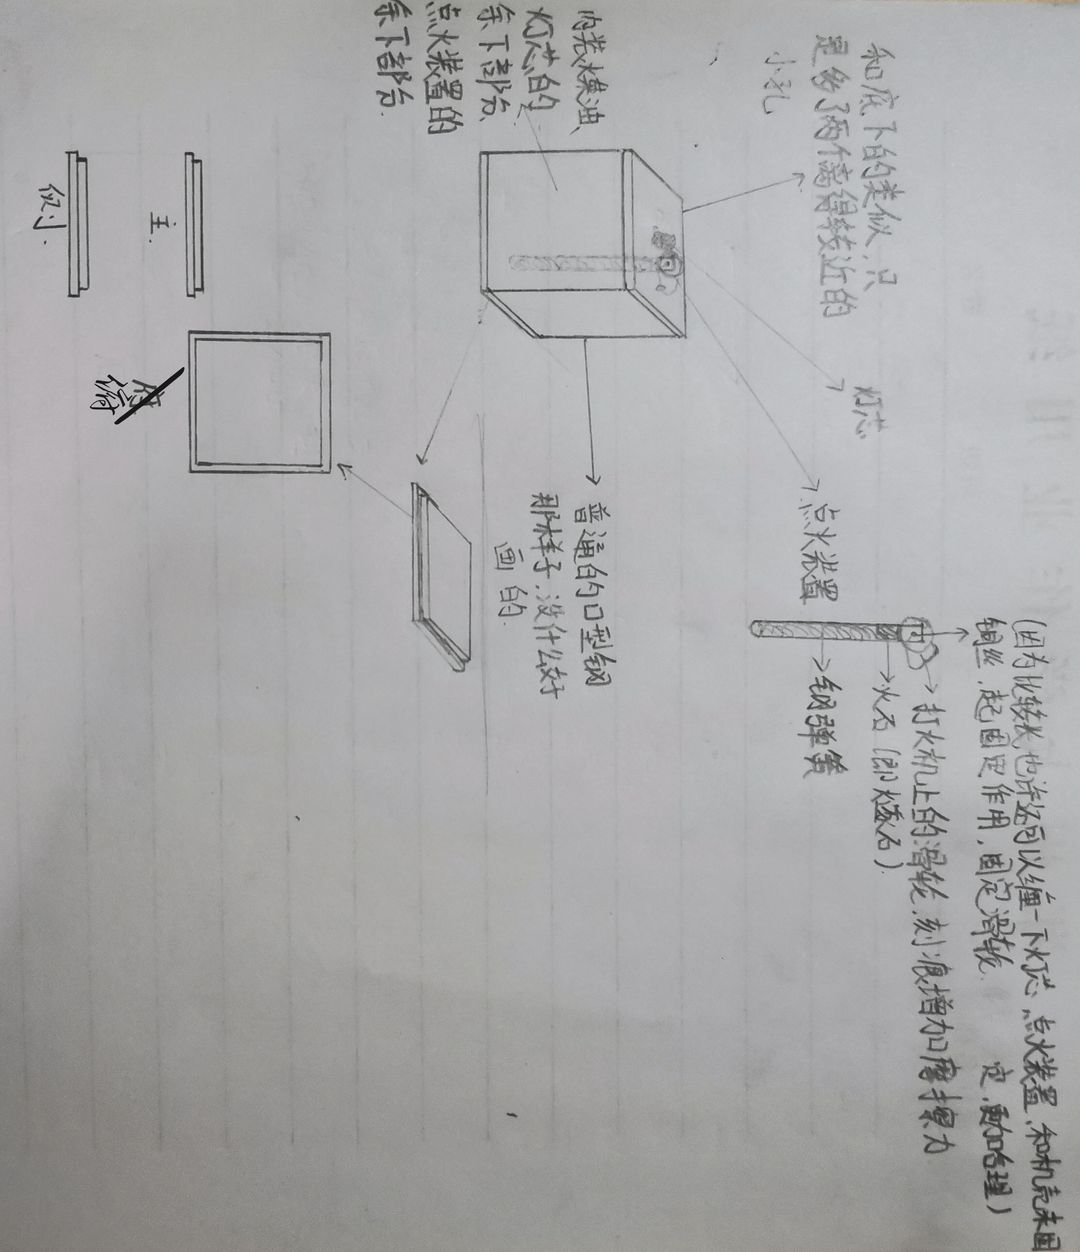 和底下的类似,只
是多了两个离得较近的
小孔
内装煤油、
灯芯的
余下部分、
点火装置的
余下部分.
灯芯
点火装置
(因为比较长也许还可以缠一下灯芯,点火装置,和机壳来固
定,更加合理)
铜丝,起固定作用,固定滑轮.
打火机上的滑轮,刻痕增加摩擦力
火石(即燧石).
钢弹簧
普通的口型钢
那样子,没什么好
画的.
主.
侧.
俯